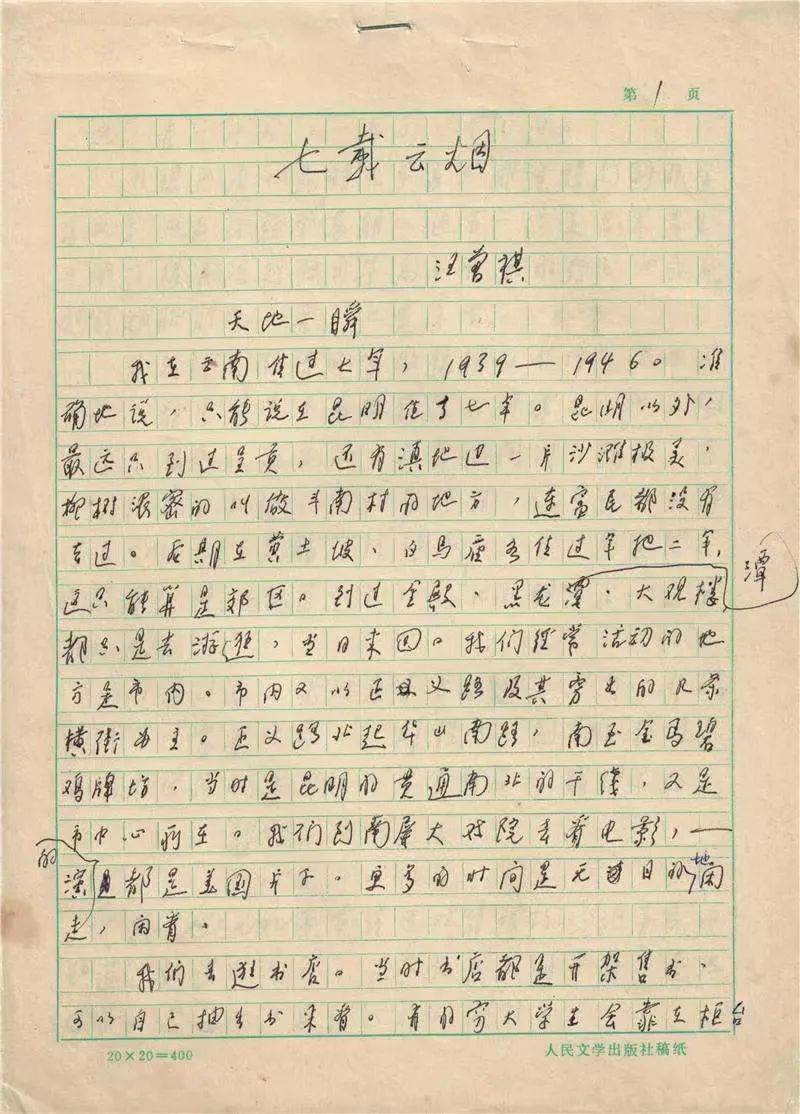 第1页
七载云烟
汪曾祺
天地一瞬
我在云南住过七年，1939—1946。准
确地说，只能说在昆明住了七年。昆明以外，
最远只到过呈贡，还有滇池边一片沙滩极美、
柳树浓密的叫做斗南村的地方，连富民都没有
去过。后期在黄土坡、白马庙各住过年把二年，
这只能算是郊区。到过金殿、黑龙潭、大观楼，
潭
都只是去游逛，当日来回。我们经常活动的地
方是市内。市内又以正义路及其旁出的几条
横街为主。正义路北起华山南路，南至金马碧
鸡牌坊，当时是昆明的贯通南北的干线，又是
市中心所在。我们到南屏大戏院去看电影，——
的
演都是美国片子。更多的时间是无目的地闲
走，闲看。
我们去逛书店。当时书店都是开架售书，
可以自己抽出书来看。有的穷大学生会靠在柜台
20×20=400
人民文学出版社稿纸